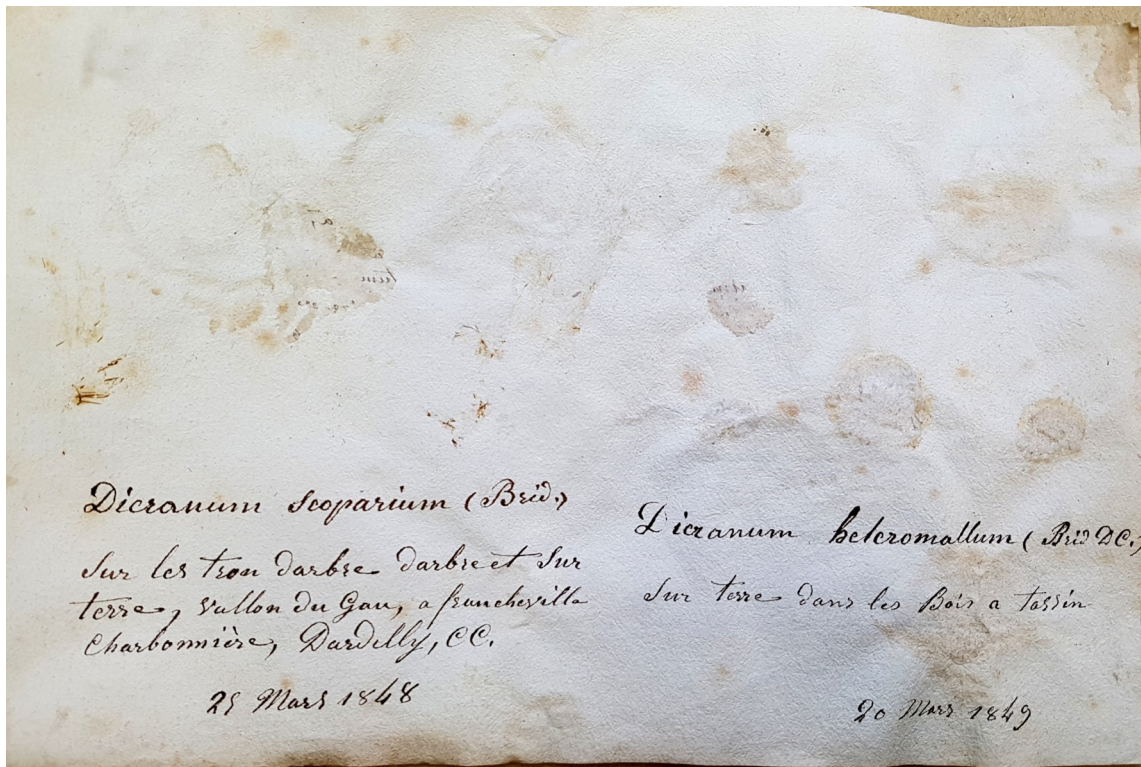 Dicranum scoparium (Brid.)
Sur les tron darbre darbre et Sur
terre, vallon du Gau, a francheville
Charbonnière, Dardilly, CC.
25 Mars 1848
Dicranum heteromallum (Brid DC.)
Sur terre dans les Bois a tassin
20 Mars 1849